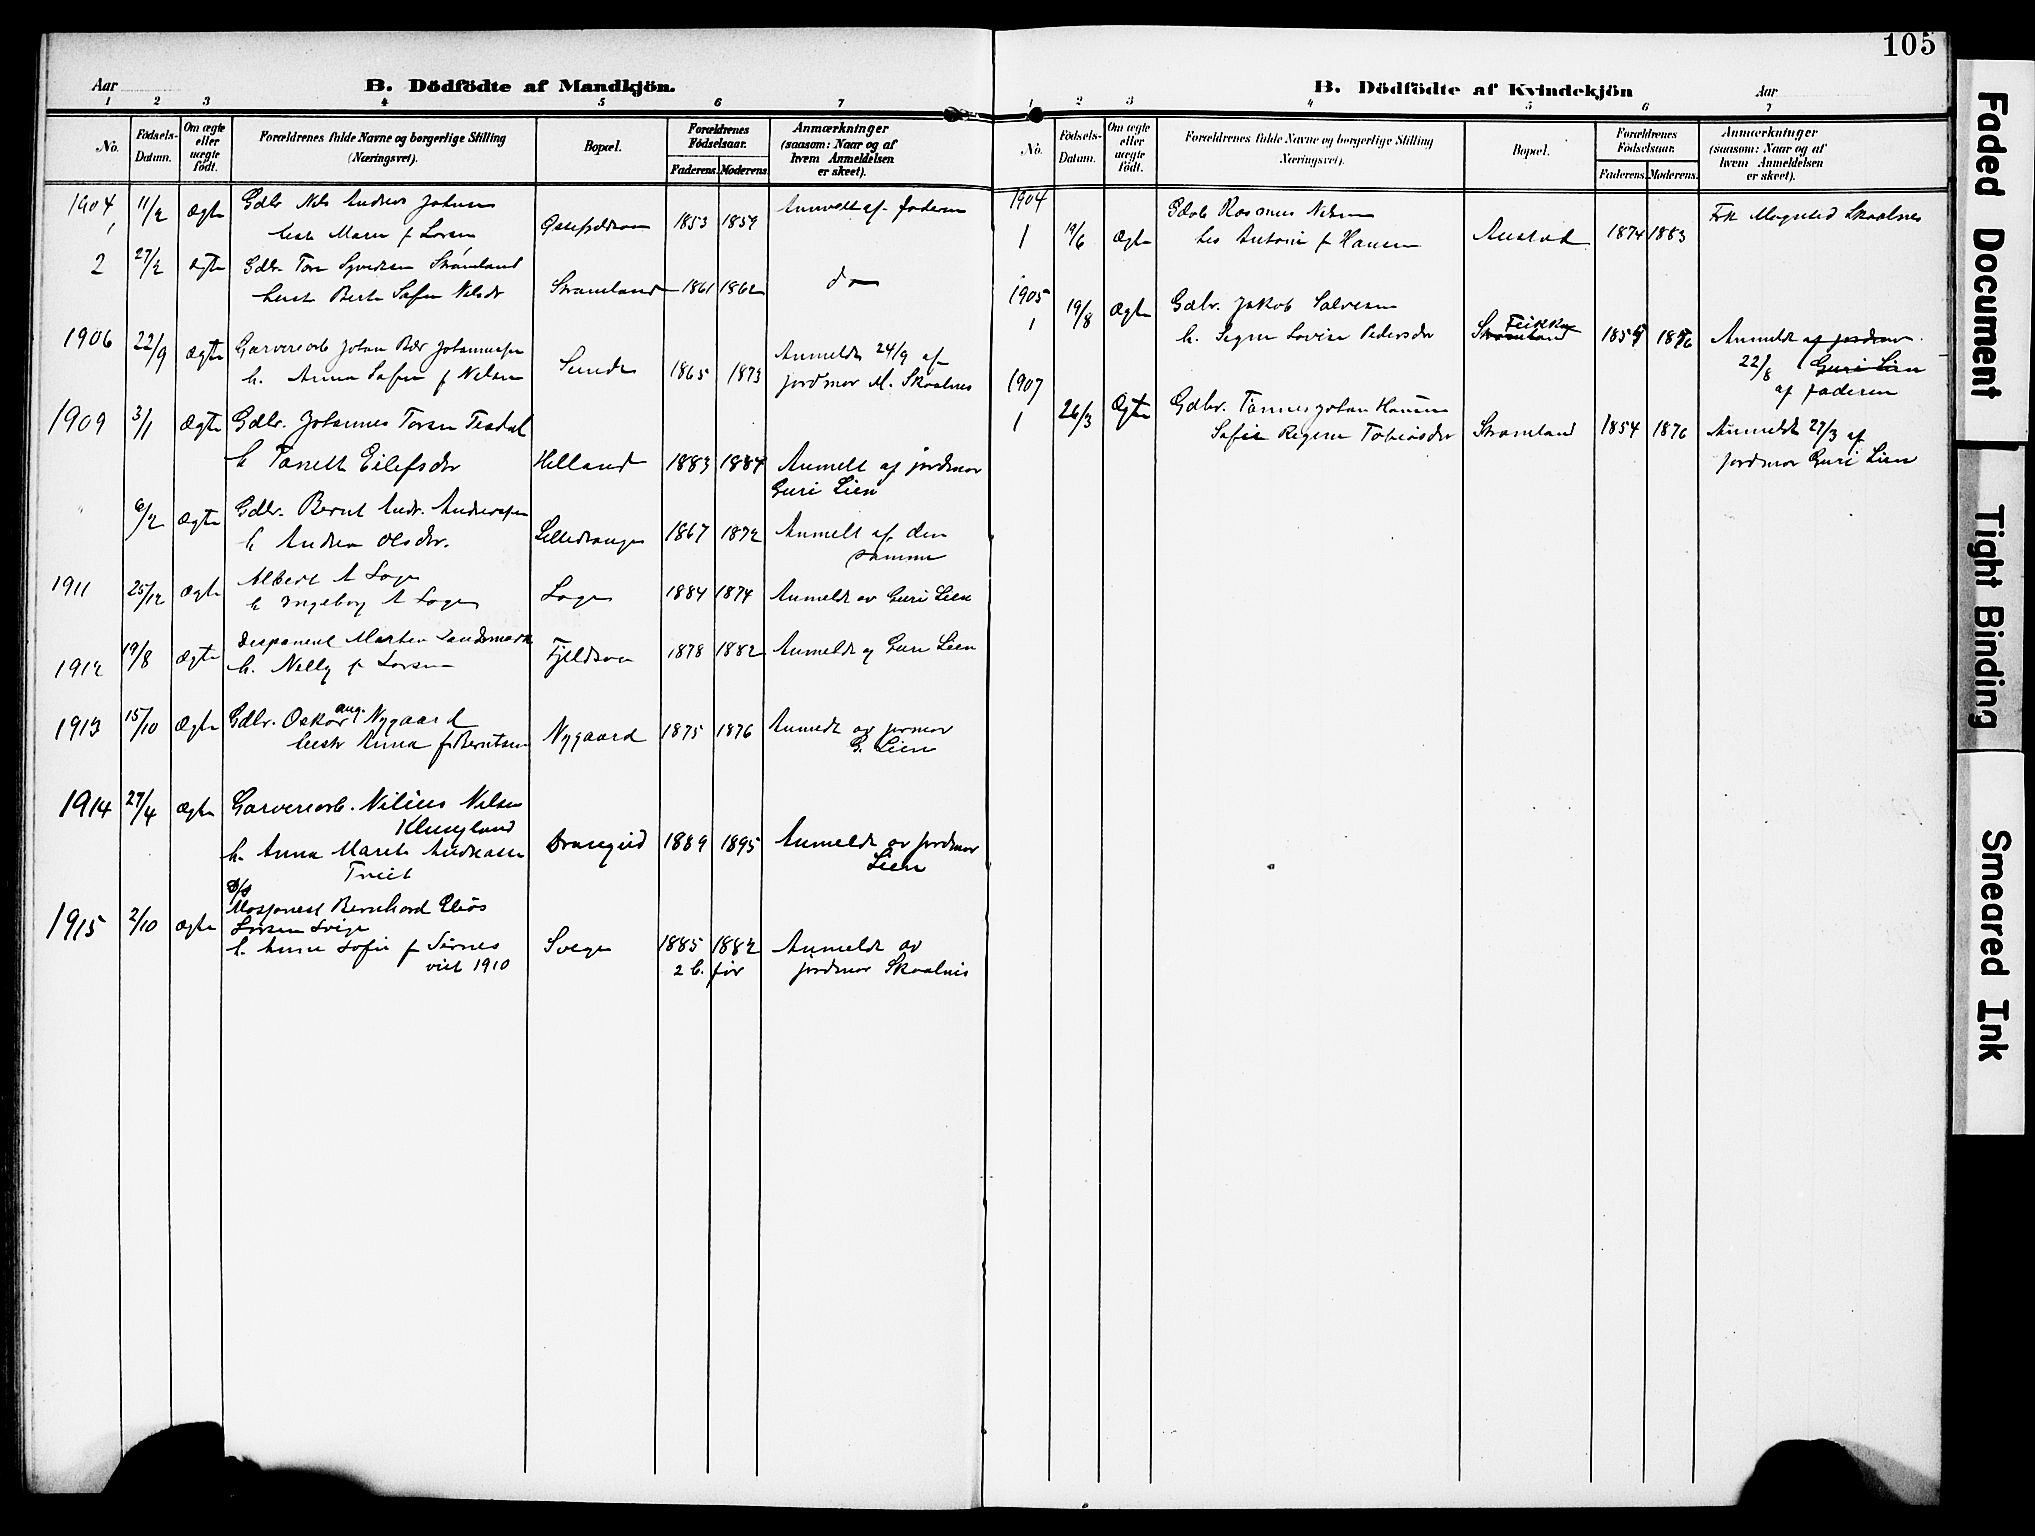 105
Aar
B. Dödfödte af Mandkjön.
1 2 3 4 5 6 7
No.
Födsels-Datum.
Om ægte eller uægte födt.
Forældrenes fulde Navne og borgerlige Stilling
(Næringsvei).
Bopæl.
Forældrenes Födselsaar.
Faderens. Moderens.
Anmærkninger
(saasom: Naar og af
hvem Anmeldelsen
er skeet).
1904 11/2 Ægte Gdbr Nils Andreas Johnsen
1 Maren f Larsen 1853 1859 Anmeldt af faderen
2 27/2 ægte Gdbr. Tore Syvertsen Strømland
Berte Sofie Nilsdr Strømland 1861 1862 do
1906 22/9 ægte Garveriarb Johan Johannessen
h. Anna Sofie f Nilsen Sunde 1865 1873 Anmeldt 24/9 af
jordmor M. Skaalnes
1909 3/1 Ægte Gdbr. Johannes Torsen Tesdal
h Tanette Eilefsdr Helland 1883 1884 Anmelt af jordmor
Guri Lien
6/2 Ægte Gdbr. Bernt Andr. Andreassen
h Andrea Olsdr. 1867 1872 Anmelt af den
samme
1911 25/12 ægte Albert A Loge
h Ingeborg A Loge Loge 1884 1874 Anmeldt av Guri Lien
1912 19/8 ægte Disponent Marten Sandsmark
h. Nelly f Larsen 1878 1882 Anmeldt Guri Lien
1913 15/10 Ægte Gdbr. Oskar Aug. Nygaard
Anna f Berntsen Nygaard 1875 1876 Anmeldt av jormor
G. Lien
1914 27/4 ægte Garveriarb. Nilius Nilsen
Klungland
h. Anna Marete Andreasen Drangeid 1889 1895 Anmeldt av jordmor
Tveit Lien
D/S
1915 2/10 ægte Maskinist Bernhard Elias
Larsen Svege
h. Anna Sofie f Sirnes Svege 1885 1882 Anmeldt av
viet 1910 2 b. før jordmor Skaalnes
B. Dödfödte af Kvindekjön
Aar
1 2 3 4 5 6 7
No.
Födsels-Datum.
Om ægte eller uægte födt.
Forældrenes fulde Navne og borgerlige Stilling
Næringsvei).
Bopæl.
Forældrenes Födselsaar.
Faderens. Moderens.
Anmærkninger
(saasom: Naar og af
hvem Anmeldelsen
er skeet).
1904 Rasmus Nilsen Frk Magnhild Skaalnes
1 19/6 ægte Antonie f Hansen Austad 1874 1883
1905 19/8 Ægte Gdbr. Jakob Salvesen
1 h. Signe Lovise Pedersdr Strømland Feikka 1876 Anmeldt af jordmor
22/8 Guri Lien
af faderen
1907
1 26/3 Ægte Gdbr. Tønnes Johan Hansen
Sofie Regine Tobiasdr Strømland 1854 1876 Anmeldt 27/3 af
jordmor Guri Lien
Faded Document
Tight Binding
Smeared Ink